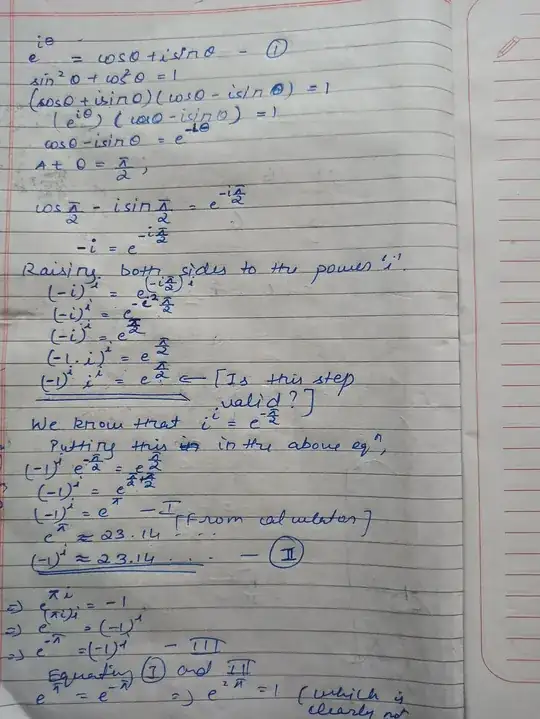 e^{iθ} = cosθ + isinθ - ①
sin²θ + cos²θ = 1
(cosθ + isinθ)(cosθ - isinθ) = 1
(e^{iθ})(cosθ - isinθ) = 1
cosθ - isinθ = e^{-iθ}
At θ = π/2,
cos π/2 - isin π/2 = e^{-iπ/2}
-i = e^{-iπ/2}
Raising both sides to the power 'i'.
(-i)^i = e^{(-iπ/2)i}
(-i)^i = e^{-i²π/2}
(-i)^i = e^{π/2}
(-1.i)^i = e^{π/2}
(-1)^i i^i = e^{π/2} ← [Is this step
valid?]
We know that i^i = e^{-π/2}
Putting this in the above eqⁿ,
(-1)^i e^{-π/2} = e^{π/2}
(-1)^i = e^{π/2+π/2}
(-1)^i = e^π - I
e^π ≈ 23.14 .... [From calculator]
(-1)^i ≈ 23.14 .... - Ⅱ
⇒ e^{πi} = -1
⇒ e^{(πi)i} = (-1)^i
⇒ e^{-π} = (-1)^i - III
Equating Ⓘ and III
e^π = e^{-π} ⇒ e^{2π} = 1 (which is
clearly not